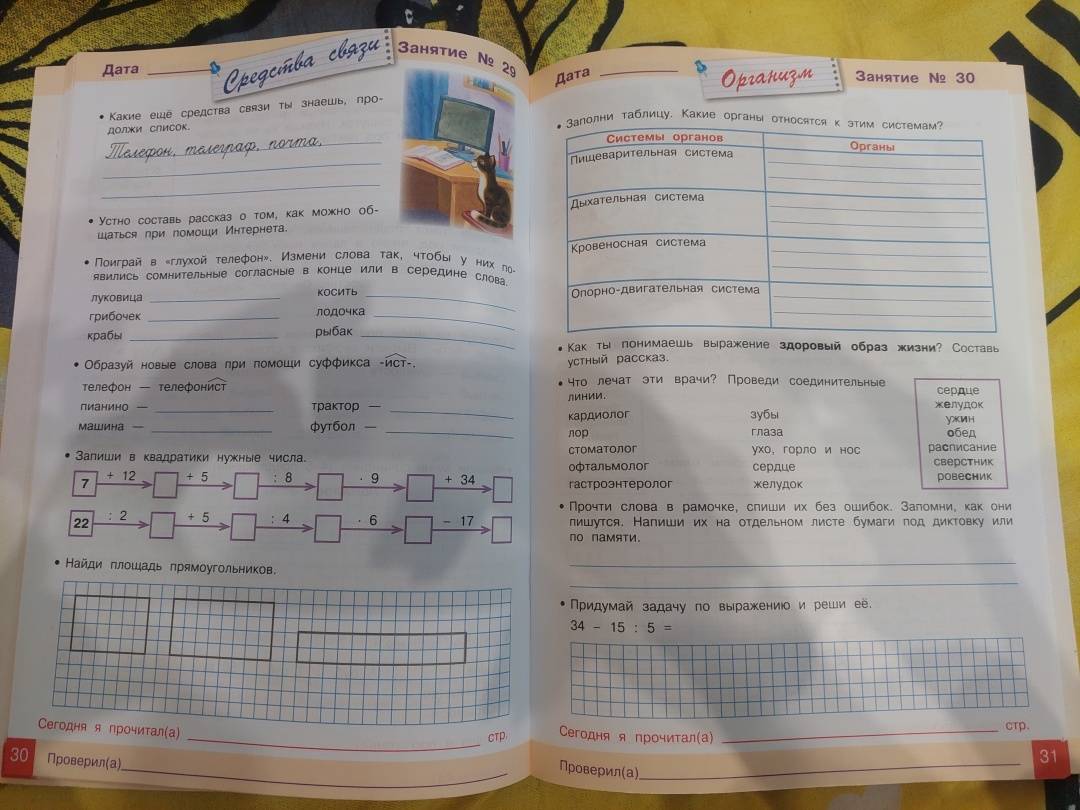 Дата
Средства связи
Занятие № 29
• Какие ещё средства связи ты знаешь, про-
должи список.
Телефон, телеграф, почта,
• Устно составь рассказ о том, как можно об-
щаться при помощи Интернета.
• Поиграй в «глухой телефон». Измени слова так, чтобы у них по-
явились сомнительные согласные в конце или в середине слова.
луковица косить
грибочек лодочка
крабы рыбак
• Образуй новые слова при помощи суффикса -ист-.
телефон — телефонист
пианино — трактор —
машина — футбол —
• Запиши в квадратики нужные числа.
7 + 12 + 5 : 8 · 9 + 34
22 : 2 + 5 : 4 · 6 − 17
• Найди площадь прямоугольников.
Сегодня я прочитал(а) стр.
30 Проверил(а)
Дата
Организм
Занятие № 30
• Заполни таблицу. Какие органы относятся к этим системам?
Системы органов Органы
Пищеварительная система
Дыхательная система
Кровеносная система
Опорно-двигательная система
• Как ты понимаешь выражение здоровый образ жизни? Составь
устный рассказ.
• Что лечат эти врачи? Проведи соединительные
линии.
кардиолог зубы
лор глаза
стоматолог ухо, горло и нос
офтальмолог сердце
гастроэнтеролог желудок
сердце
желудок
ужин
обед
расписание
сверстник
ровесник
• Прочти слова в рамочке, спиши их без ошибок. Запомни, как они
пишутся. Напиши их на отдельном листе бумаги под диктовку или
по памяти.
• Придумай задачу по выражению и реши её.
34 − 15 : 5 =
Сегодня я прочитал(а) стр.
Проверил(а) 31